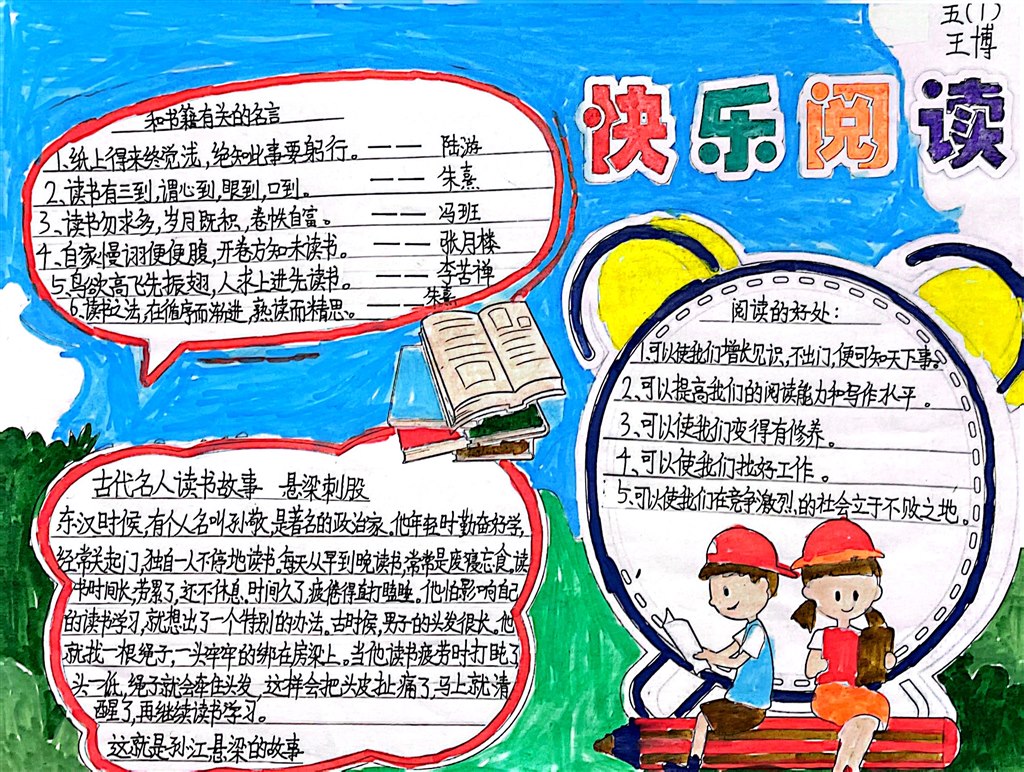 五(1)
王博
快乐阅读
和书籍有关的名言
1.纸上得来终觉浅,绝知此事要躬行。—— 陆游
2、读书有三到,谓心到,眼到,口到。—— 朱熹
3、读书勿求多,岁月既积,卷帙自富。—— 冯班
4、自家慢诩便便腹,开卷方知未读书。—— 张月楼
5.鸟欲高飞先振翅,人求上进先读书。—— 李苦禅
6.读书之法,在循序而渐进,熟读而精思。朱熹
阅读的好处:
1.可以使我们增长见识,不出门,便可知天下事。
2.可以提高我们的阅读能力和写作水平。
3、可以使我们变得有修养。
4、可以使我们找好工作。
5、可以使我们在竞争激烈,的社会立于不败之地。
古代名人读书故事 悬梁刺股
东汉时候,有个人名叫孙敬,是著名的政治家。他年轻时勤奋好学,
经常关起门,独自一人不停地读书。每天从早到晚读书,常常是废寝忘食。读
书时间长,劳累了,还不休息,时间久了,疲倦得直打瞌睡。他怕影响自己
的读书学习,就想出了一个特别的办法。古时候,男子的头发很长。他
就找一根绳子,一头牢牢的绑在房梁上。当他读书疲劳时打盹了
头一低,绳子就会牵住头发,这样会把头皮扯痛了,马上就清
醒了,再继续读书学习。
这就是孙江悬梁的故事